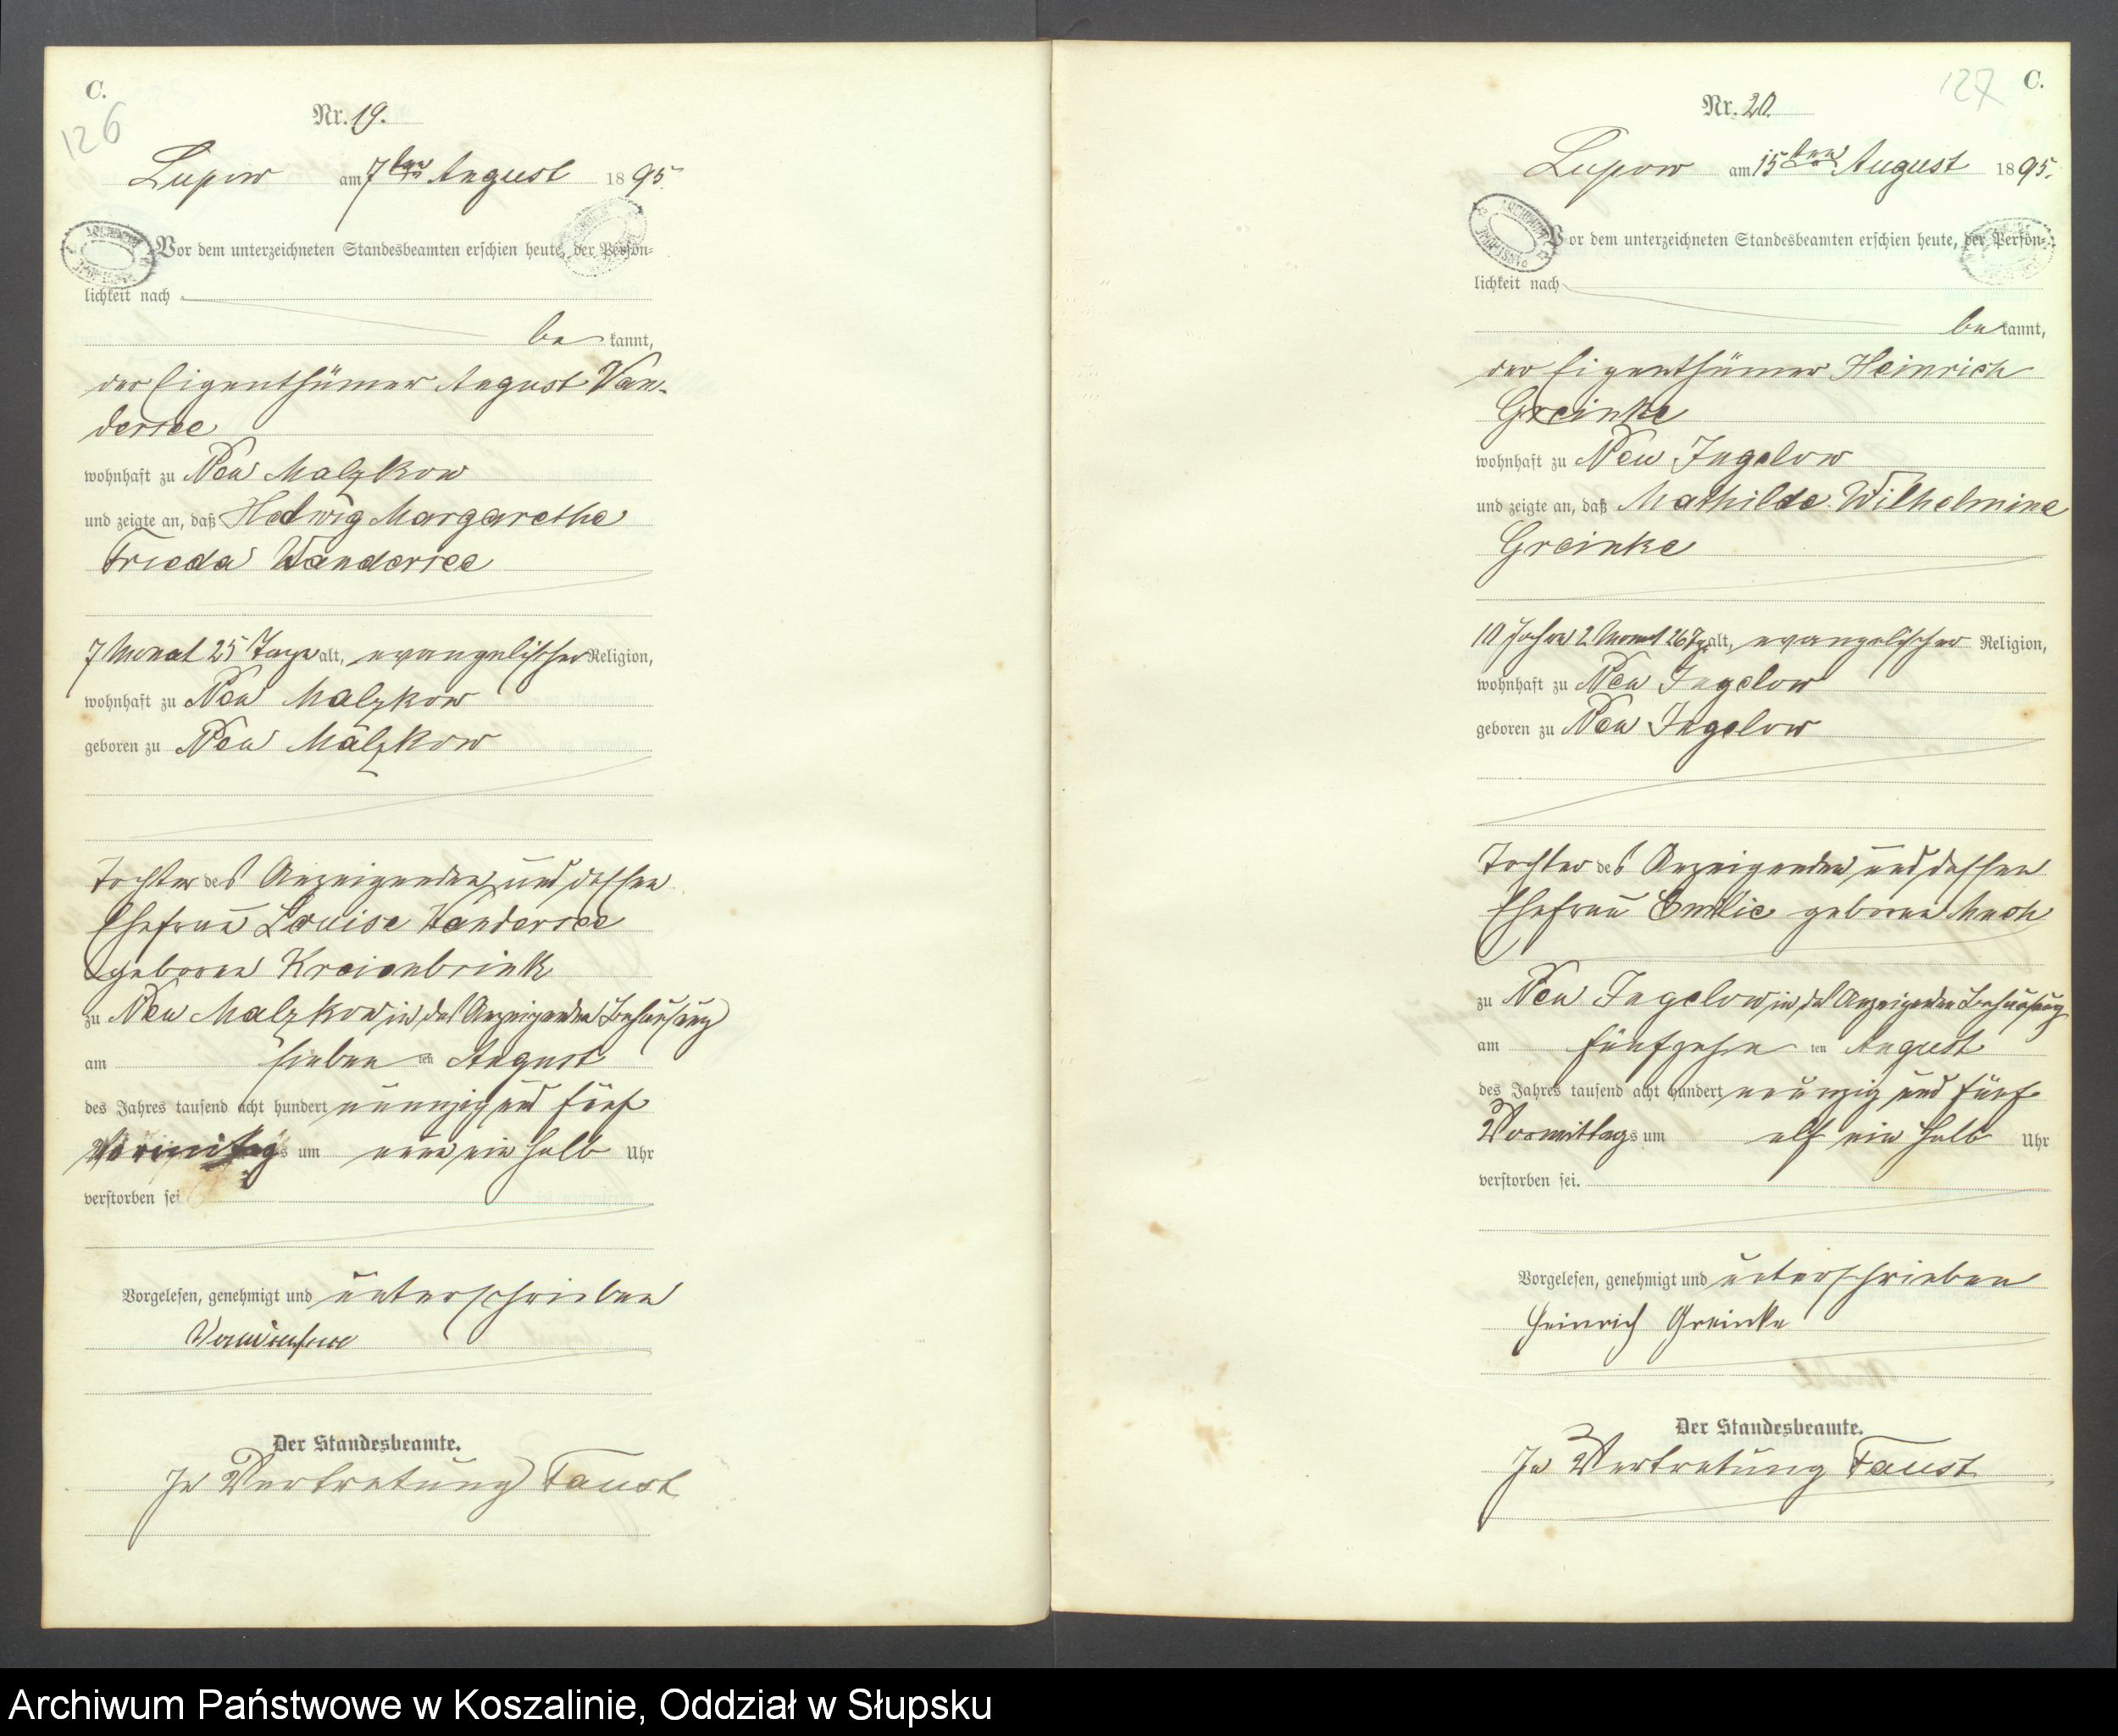 C.
126
Nr. 19.
Lupow am 7ten August 1895.
Vor dem unterzeichneten Standesbeamten erschien heute, der Persön-
lichkeit nach
be kannt,
der Eigenthümer August Wan-
dersee
wohnhaft zu Neu Malzkow
und zeigte an, daß Hedwig Margarethe
Frieda Wandersee
7 Monat 25 Tage alt, evangelischer Religion,
wohnhaft zu Neu Malzkow
geboren zu Neu Malzkow
Tochter des Anzeigenden und dessen
Ehefrau Louise Wandersee
geboren Kreienbrink
zu Neu Malzkow in des Anzeigenden Behausung
am sieben ten August
des Jahres tausend acht hundert neunzig und fünf
Vormittags um neun ein halb Uhr
verstorben sei
Vorgelesen, genehmigt und unterschrieben
Der Standesbeamte.
In Vertretung Faust
127
C.
Nr. 20.
Lupow am 15ten August 1895.
Vor dem unterzeichneten Standesbeamten erschien heute, der Persön-
lichkeit nach
be kannt,
der Eigenthümer Heinrich
Greinke
wohnhaft zu Neu Jugelow
und zeigte an, daß Mathilde Wilhelmine
Greinke
10 Jahre 2 Monat 26 Tg alt, evangelischer Religion,
wohnhaft zu Neu Jugelow
geboren zu Neu Jugelow
Tochter des Anzeigenden und dessen
Ehefrau Emilie geboren Mach
zu Neu Jugelow in des Anzeigenden Behausung
am fünfzehn ten August
des Jahres tausend acht hundert neunzig und fünf
Vormittags um elf ein halb Uhr
verstorben sei.
Vorgelesen, genehmigt und unterschrieben
Heinrich Greinke
Der Standesbeamte.
In Vertretung Faust
Archiwum Państwowe w Koszalinie, Oddział w Słupsku